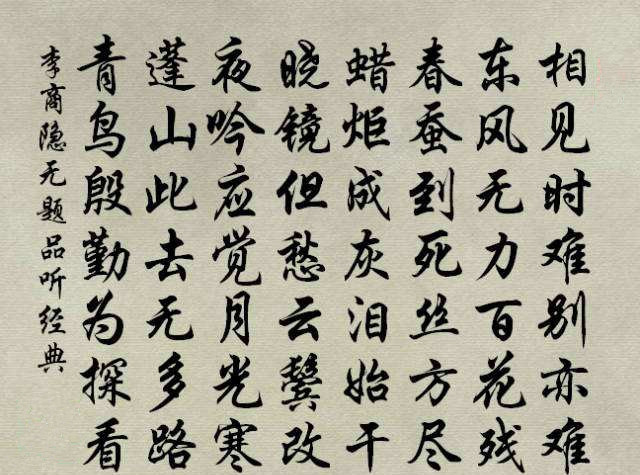 相见时难别亦难
东风无力百花残
春蚕到死丝方尽
蜡炬成灰泪始干
晓镜但愁云鬓改
夜吟应觉月光寒
蓬山此去无多路
青鸟殷勤为探看
李商隐无题品听经典